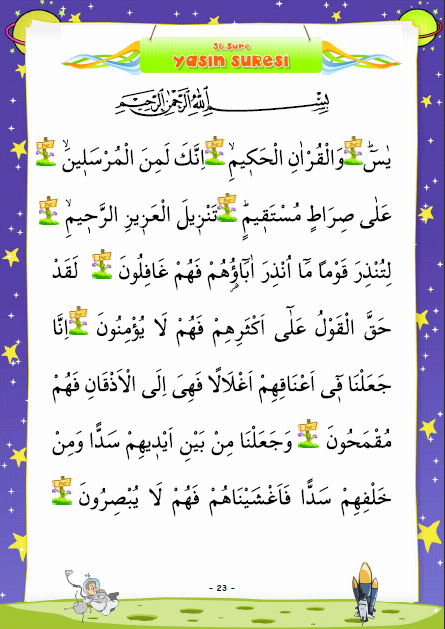 36. Sure
YASİN SURESİ
بِسْــــــمِ اللّٰهِ الرَّحْمٰنِ الرَّحٖيمِ
يٰسٓۜ وَالْقُرْاٰنِ الْحَكٖيمِۙ اِنَّكَ لَمِنَ الْمُرْسَلٖينَۙ
عَلٰى صِرَاطٍ مُسْتَقٖيمٍۜ تَنْزٖيلَ الْعَزٖيزِ الرَّحٖيمِۙ
لِتُنْذِرَ قَوْمًا مَٓا اُنْذِرَ اٰبَٓاؤُ۬هُمْ فَهُمْ غَافِلُونَ لَقَدْ
حَقَّ الْقَوْلُ عَلٰٓى اَكْثَرِهِمْ فَهُمْ لَا يُؤْمِنُونَ اِنَّا
جَعَلْنَا فٖٓى اَعْنَاقِهِمْ اَغْلَالًا فَهِىَ اِلَى الْاَذْقَانِ فَهُمْ
مُقْمَحُونَ وَجَعَلْنَا مِنْ بَيْنِ اَيْدٖيهِمْ سَدًّا وَمِنْ
خَلْفِهِمْ سَدًّا فَاَغْشَيْنَاهُمْ فَهُمْ لَا يُبْصِرُونَ
- 23 -